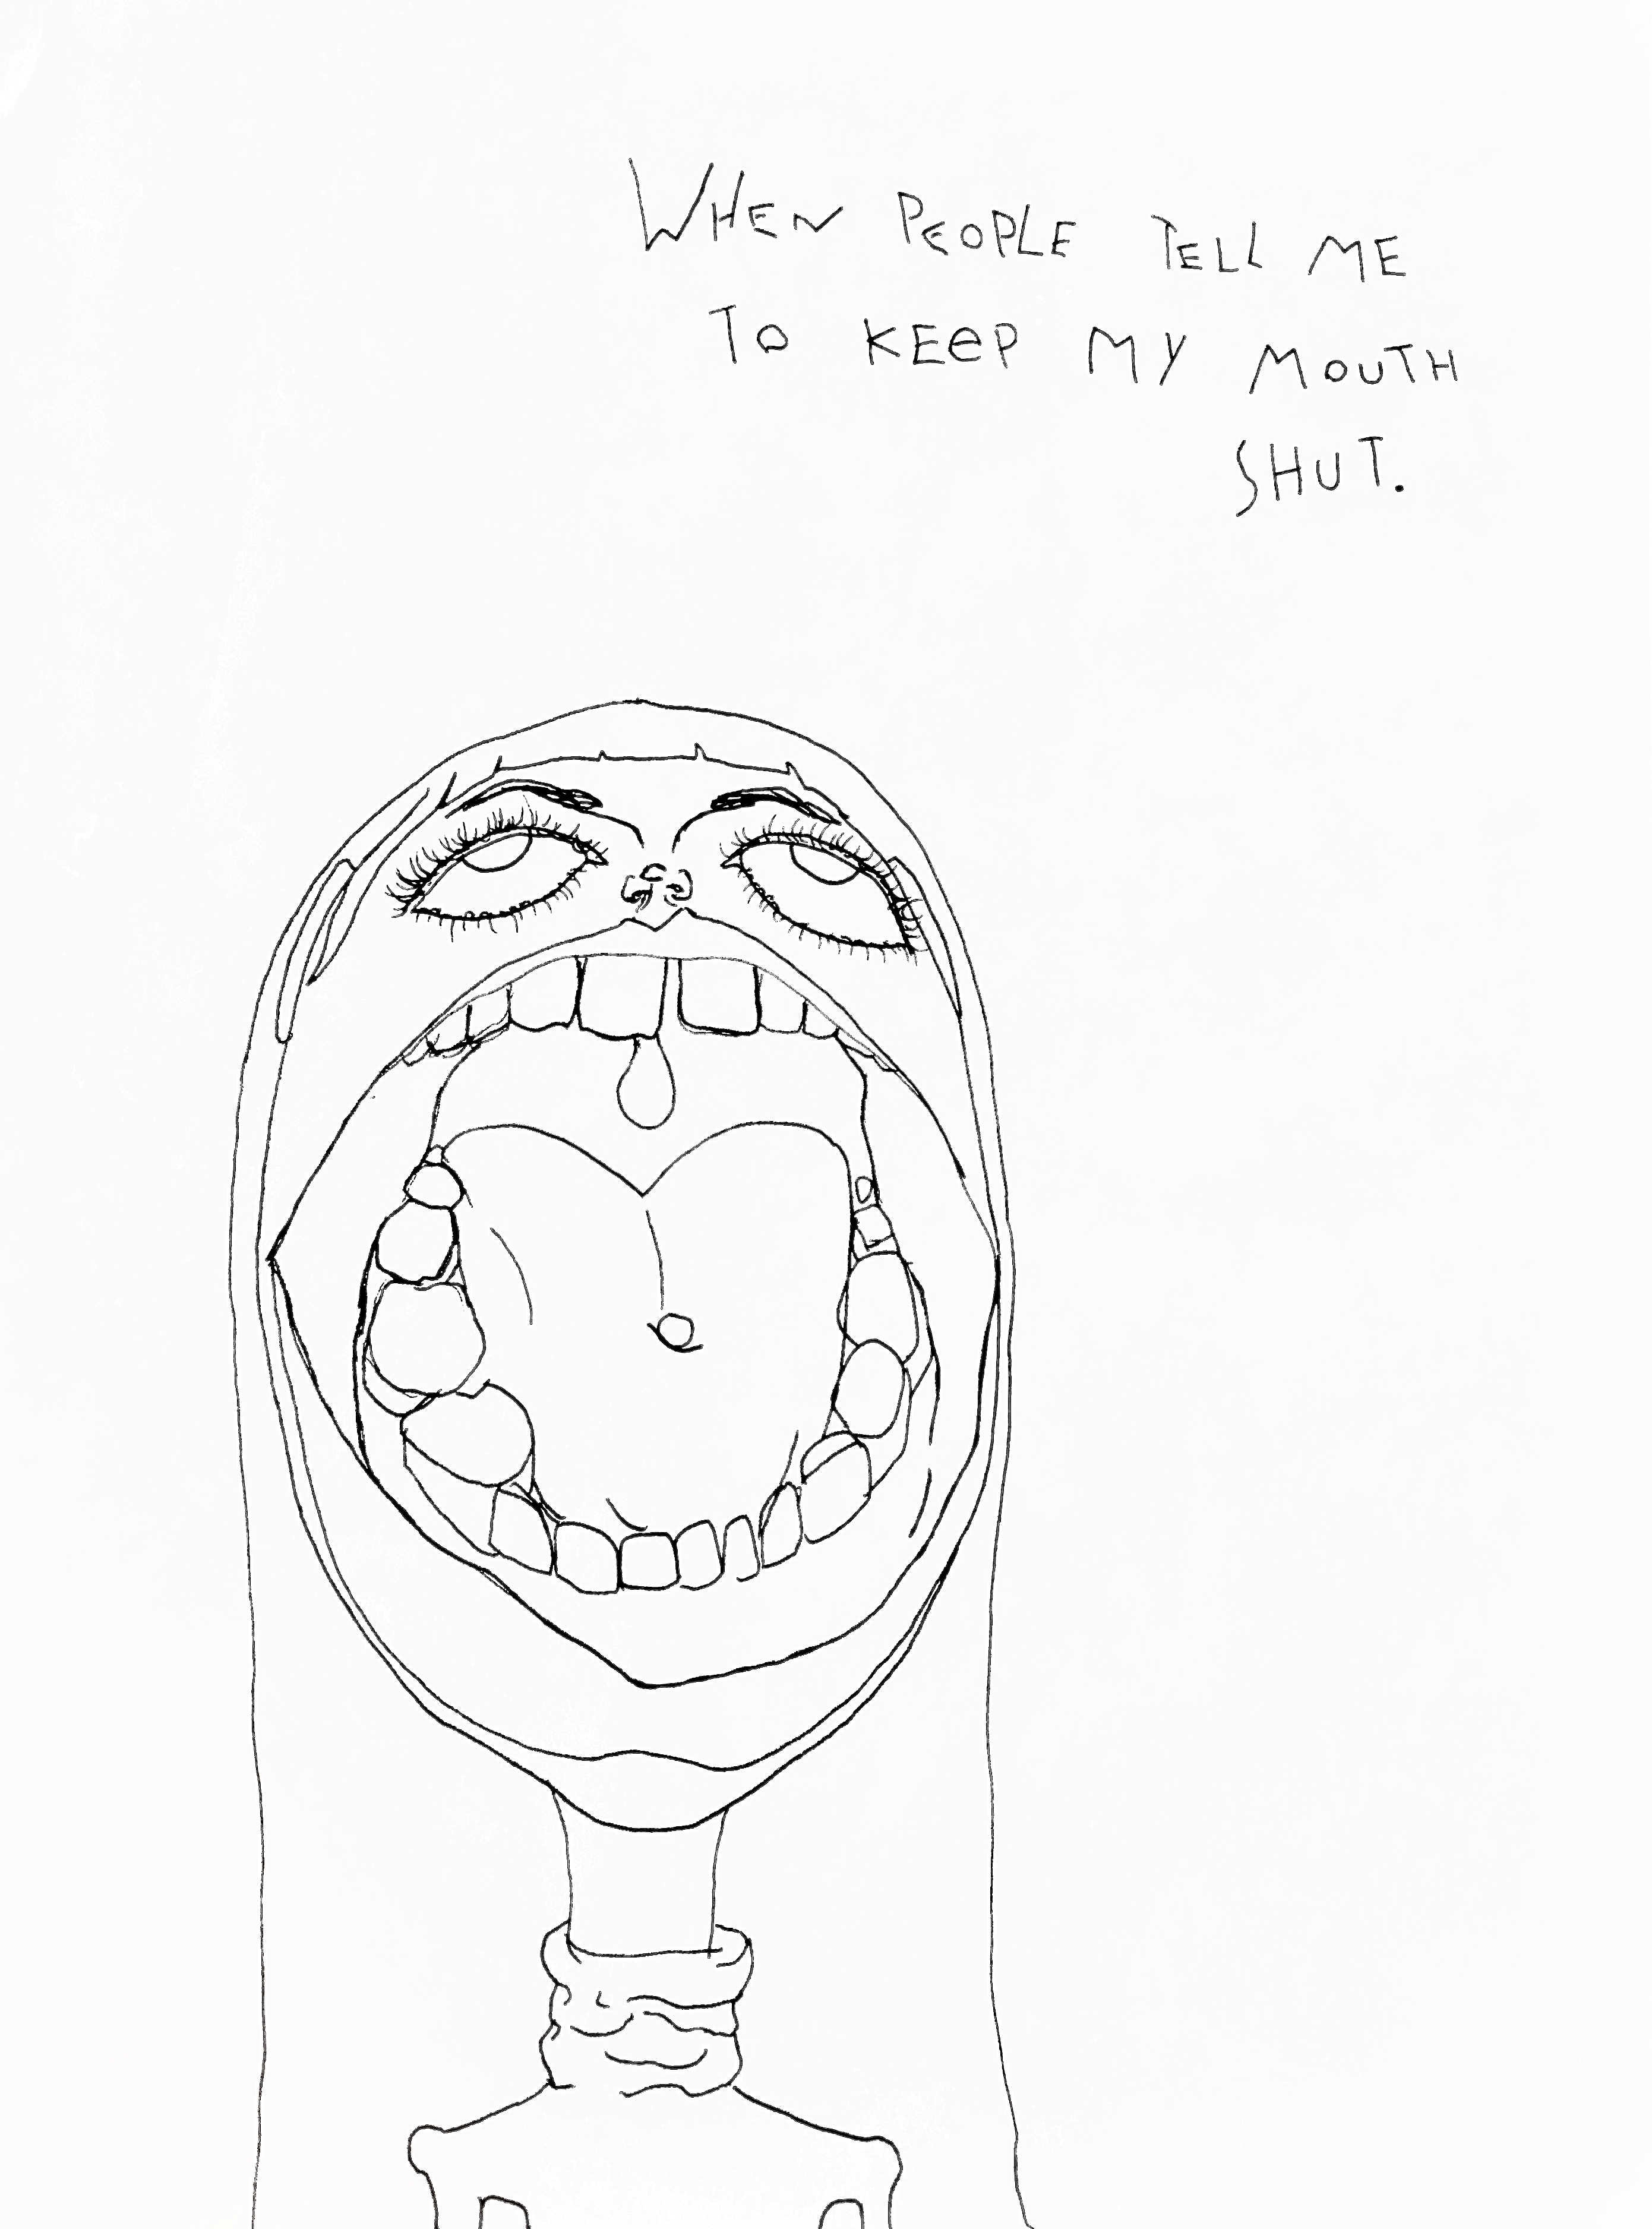 WHEN PEOPLE TELL ME
TO KEEP MY MOUTH
SHUT.